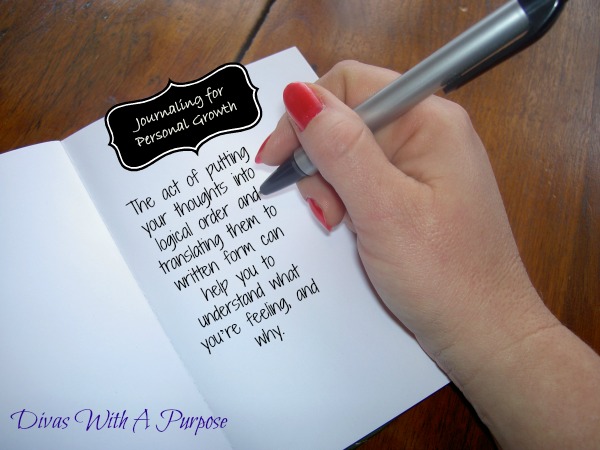 Journaling for
Personal Growth
The act of putting
your thoughts into
logical order and
translating them to
written form can
help you to
understand what
you're feeling, and
why.
Divas With A Purpose